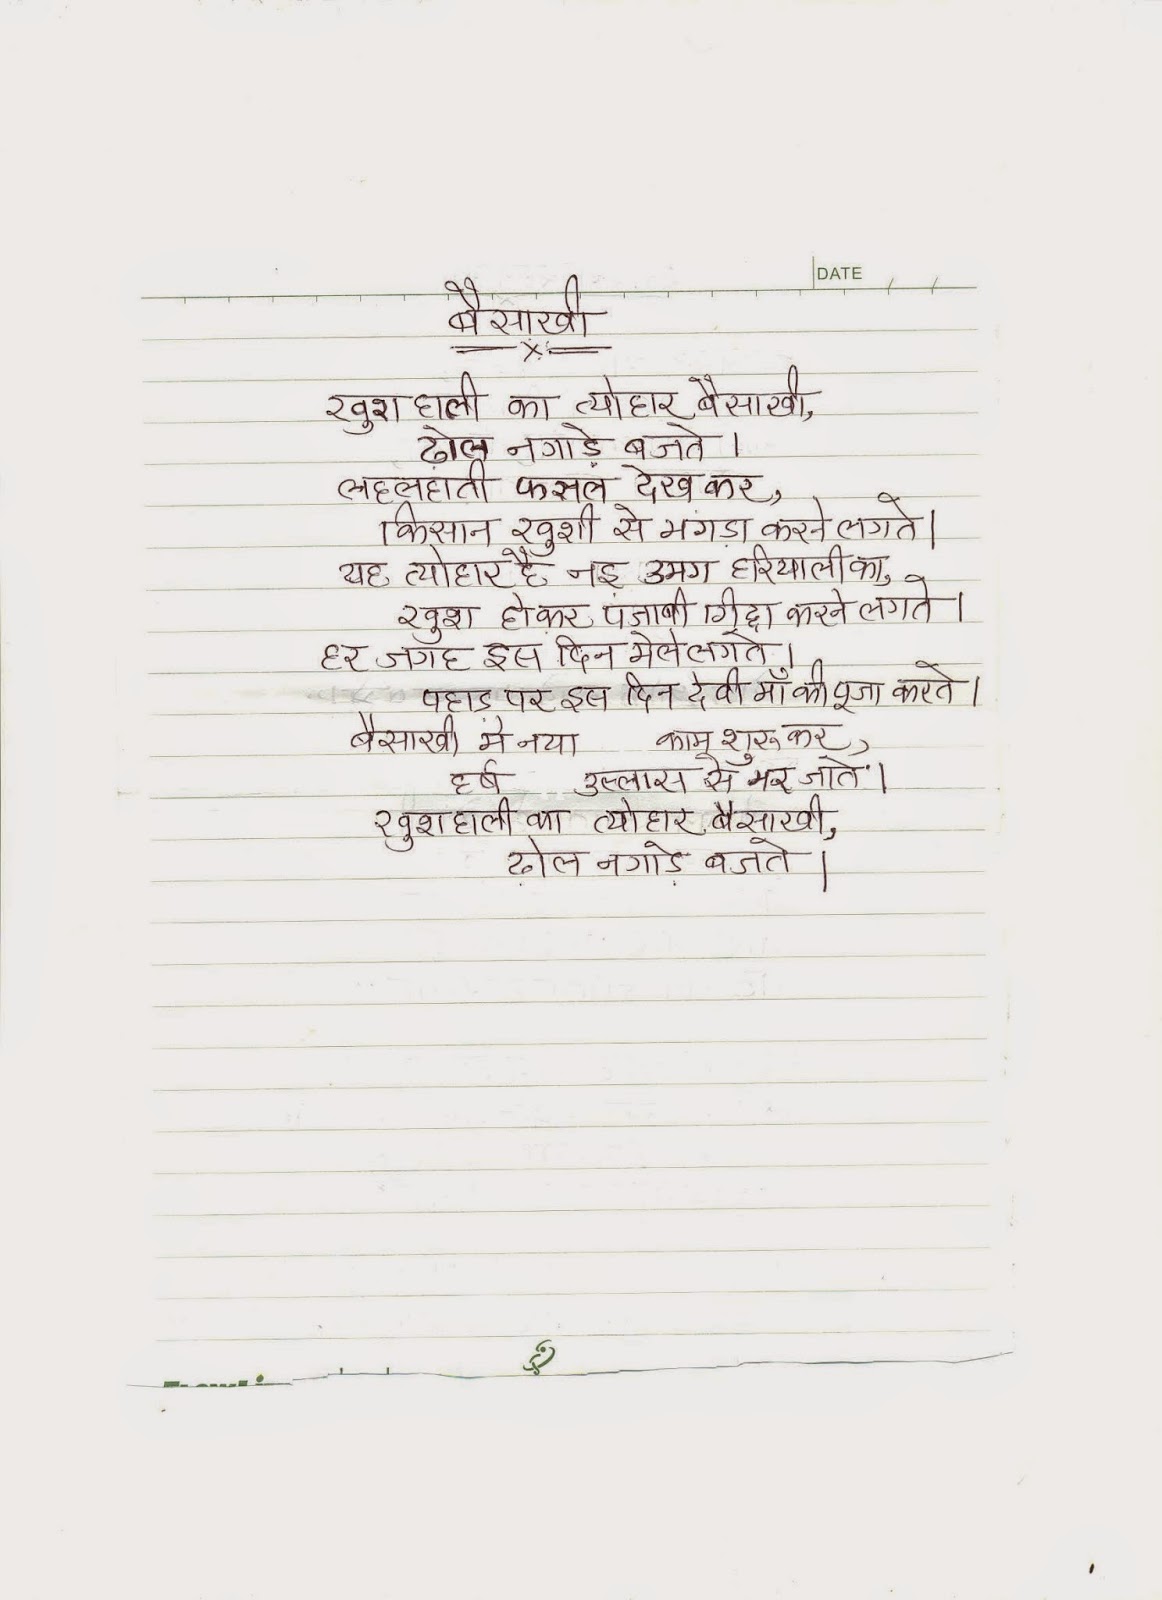 DATE / /
बैसाखी
x
खुशहाली का त्योहार बैसाखी,
ढ़ोल नगाड़े बजते।
लहलहाती फसल देख कर,
किसान खुशी से भगड़ा करने लगते।
यह त्योहार है नइ उमग हरियाली का,
खुश होकर पंजाबी गिद्दा करने लगते।
हर जगह इस दिन मेले लगते।
पहाड़ पर इस दिन देवी माँ की पूजा करते।
बैसाखी में नया काम शुरू कर,
हर्ष उल्लास से भर जाते।
खुशहाली का त्योहार बैसाखी,
ढ़ोल नगाड़े बजते।